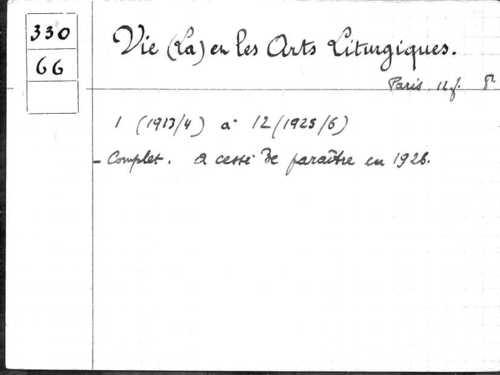 330
66
Vie (La) en les Arts Liturgiques.
Paris. 12 f. 8°
1 (1913/4) à 12 (1925/6)
- Complet. A cessé de paraître en 1926.